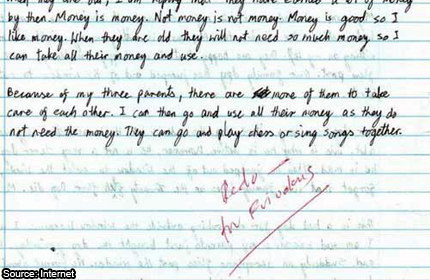 by then. Money is money. Not money is not money. Money is good so I
like money. When they are old they will not need so much money so I
can take all their money and use.
Because of my three parents, there are more of them to take
care of each other. I can then go and use all their money as they do
not need the money. They can go and play chess or sing songs together.
Redo
Source: Internet